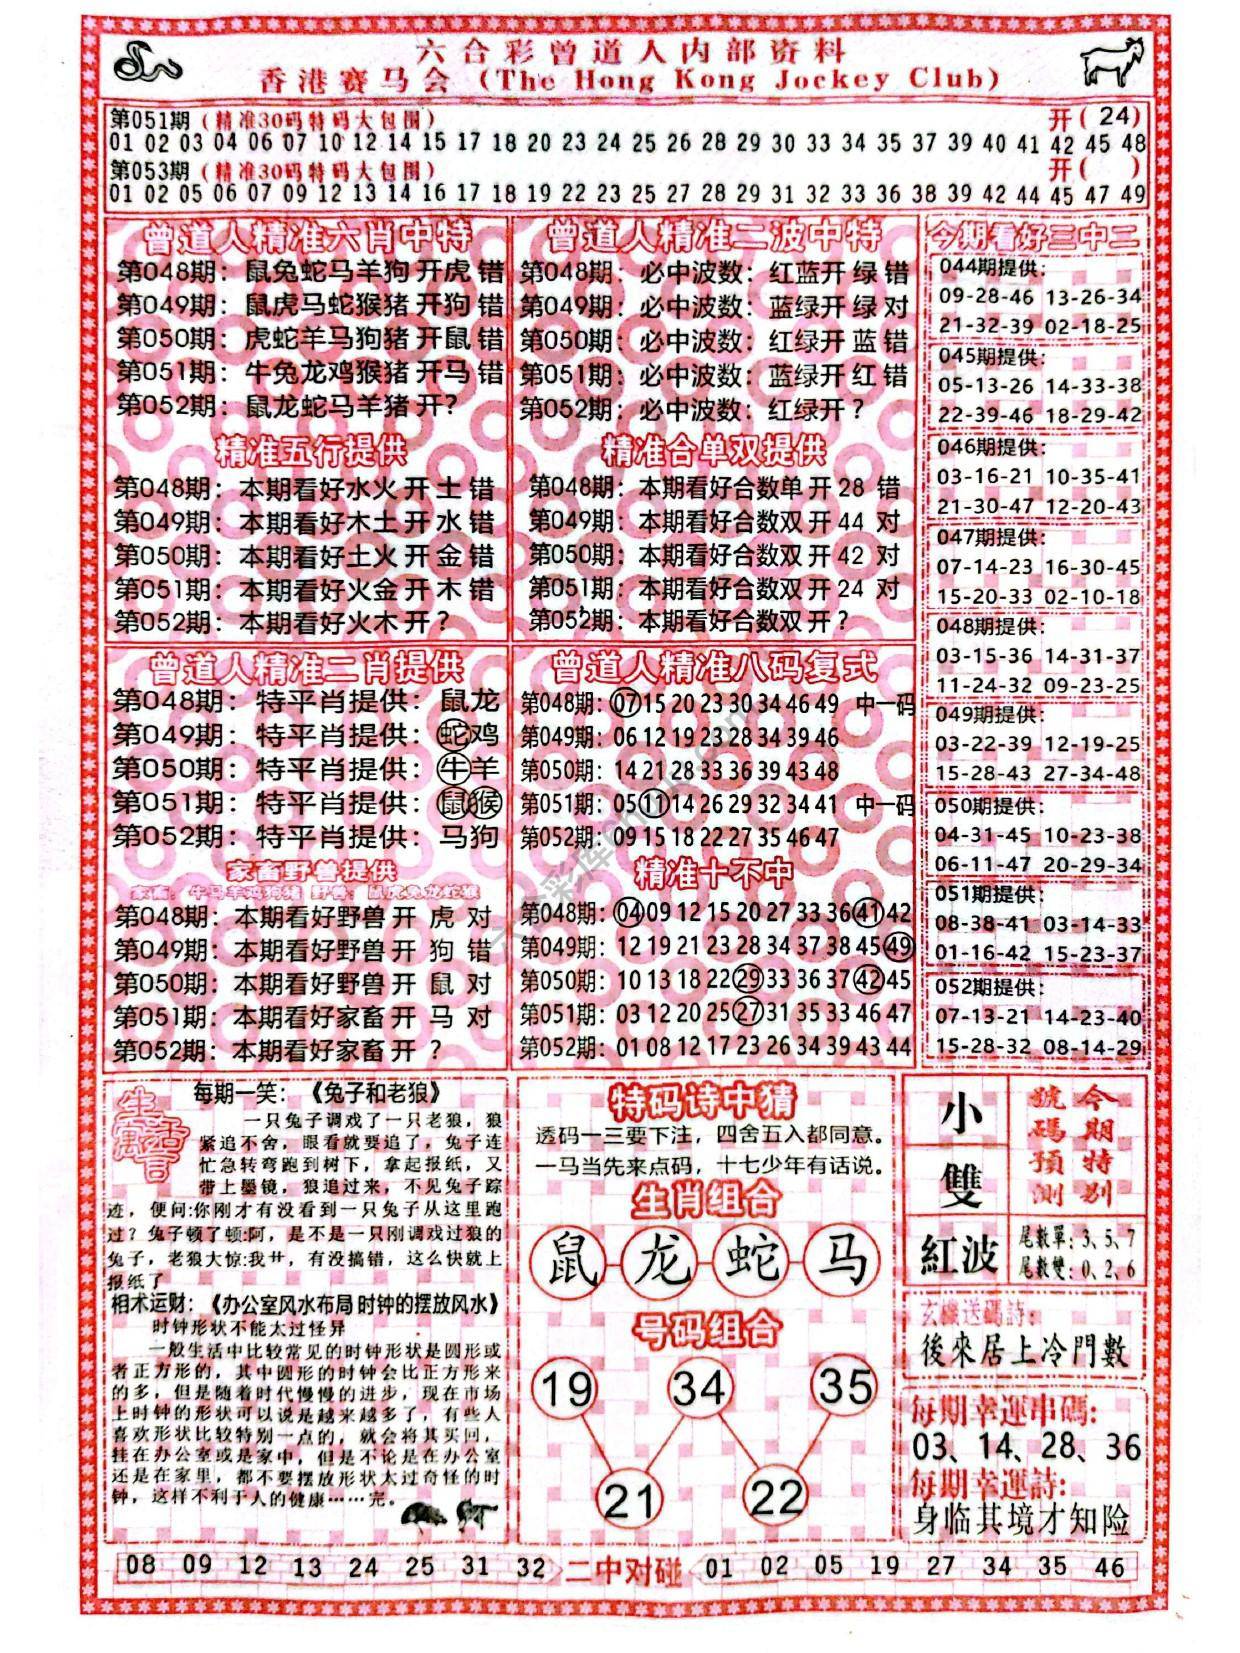 六合彩曾道人内部资料
香港赛马会 (The Hong Kong Jockey Club)
第051期(精准30码特码大包围) 开(24)
01 02 03 04 06 07 10 12 14 15 17 18 20 23 24 25 26 28 29 30 33 34 35 37 39 40 41 42 45 48
第053期(精准30码特码大包围) 开( )
01 02 05 06 07 09 12 13 14 16 17 18 19 22 23 25 27 28 29 31 32 33 36 38 39 42 44 45 47 49
曾道人精准六肖中特
第048期：鼠兔蛇马羊狗 开虎 错
第049期：鼠虎马蛇猴猪 开狗 错
第050期：虎蛇羊马狗猪 开鼠 错
第051期：牛兔龙鸡猴猪 开马 错
第052期：鼠龙蛇马羊猪 开？
精准五行提供
第048期：本期看好水火 开 土 错
第049期：本期看好木土 开 水 错
第050期：本期看好土火 开 金 错
第051期：本期看好火金 开 木 错
第052期：本期看好火木 开？
曾道人精准二波中特
第048期：必中波数：红蓝开 绿 错
第049期：必中波数：蓝绿开 绿 对
第050期：必中波数：红绿开 蓝 错
第051期：必中波数：蓝绿开 红 错
第052期：必中波数：红绿开？
精准合单双提供
第048期：本期看好合数单 开 28 错
第049期：本期看好合数双 开 44 对
第050期：本期看好合数双 开 42 对
第051期：本期看好合数双 开 24 对
第052期：本期看好合数双 开？
今期看好三中二
044期提供：
09-28-46 13-26-34
21-32-39 02-18-25
045期提供：
05-13-26 14-33-38
22-39-46 18-29-42
046期提供：
03-16-21 10-35-41
21-30-47 12-20-43
047期提供：
07-14-23 16-30-45
15-20-33 02-10-18
048期提供：
03-15-36 14-31-37
11-24-32 09-23-25
049期提供：
03-22-39 12-19-25
15-28-43 27-34-48
050期提供：
04-31-45 10-23-38
06-11-47 20-29-34
051期提供：
08-38-41 03-14-33
01-16-42 15-23-37
052期提供：
07-13-21 14-23-40
15-28-32 08-14-29
曾道人精准二肖提供
第048期：特平肖提供：鼠龙
第049期：特平肖提供：蛇鸡
第050期：特平肖提供：牛羊
第051期：特平肖提供：鼠猴
第052期：特平肖提供：马狗
家畜野兽提供
家畜：牛马羊鸡狗猪 野兽：鼠虎兔龙蛇猴
第048期：本期看好野兽 开 虎 对
第049期：本期看好野兽 开 狗 错
第050期：本期看好野兽 开 鼠 对
第051期：本期看好家畜 开 马 对
第052期：本期看好家畜 开 ？
曾道人精准八码复式
第048期：07 15 20 23 30 34 46 49 中一码
第049期：06 12 19 23 28 34 39 46
第050期：14 21 28 33 36 39 43 48
第051期：05 11 14 26 29 32 34 41 中一码
第052期：09 15 18 22 27 35 46 47
精准十不中
第048期：04 09 12 15 20 27 33 36 41 42
第049期：12 19 21 23 28 34 37 38 45 49
第050期：10 13 18 22 29 33 36 37 42 45
第051期：03 12 20 25 27 31 35 33 46 47
第052期：01 08 12 17 23 26 34 39 43 44
生活寓言
每期一笑：《兔子和老狼》
一只兔子调戏了一只老狼，狼
紧追不舍，眼看就要追了，兔子连
忙急转弯跑到树下，拿起报纸，又
带上墨镜，狼追过来，不见兔子踪
迹，便问:你刚才有没看到一只兔子从这里跑
过？兔子顿了顿:阿，是不是一只刚调戏过狼的
兔子，老狼大惊:我艹，有没搞错，这么快就上
报纸了
相术运财：《办公室风水布局 时钟的摆放风水》
时钟形状不能太过怪异
一般生活中比较常见的时钟形状是圆形或
者正方形的，其中圆形的时钟会比正方形来
的多，但是随着时代慢慢的进步，现在市场
上时钟的形状可以说是越来越多了，有些人
喜欢形状比较特别一点的，就会将其买回，
挂在办公室或是家中，但是不论是在办公室
还是在家里，都不要摆放形状太过奇怪的时
钟，这样不利于人的健康……完。
特码诗中猜
透码一三要下注，四舍五入都同意。
一马当先来点码，十七少年有话说。
生肖组合
鼠 龙 蛇 马
号码组合
19 34 35
21 22
小
雙
今期特别
號碼預测
紅波
尾數單：3、5、7
尾數雙：0、2、6
玄機送碼詩：
後來居上冷門數
每期幸運串碼：
03、14、28、36
每期幸運詩：
身临其境才知险
08 09 12 13 24 25 31 32 二中对碰 01 02 05 19 27 34 35 46